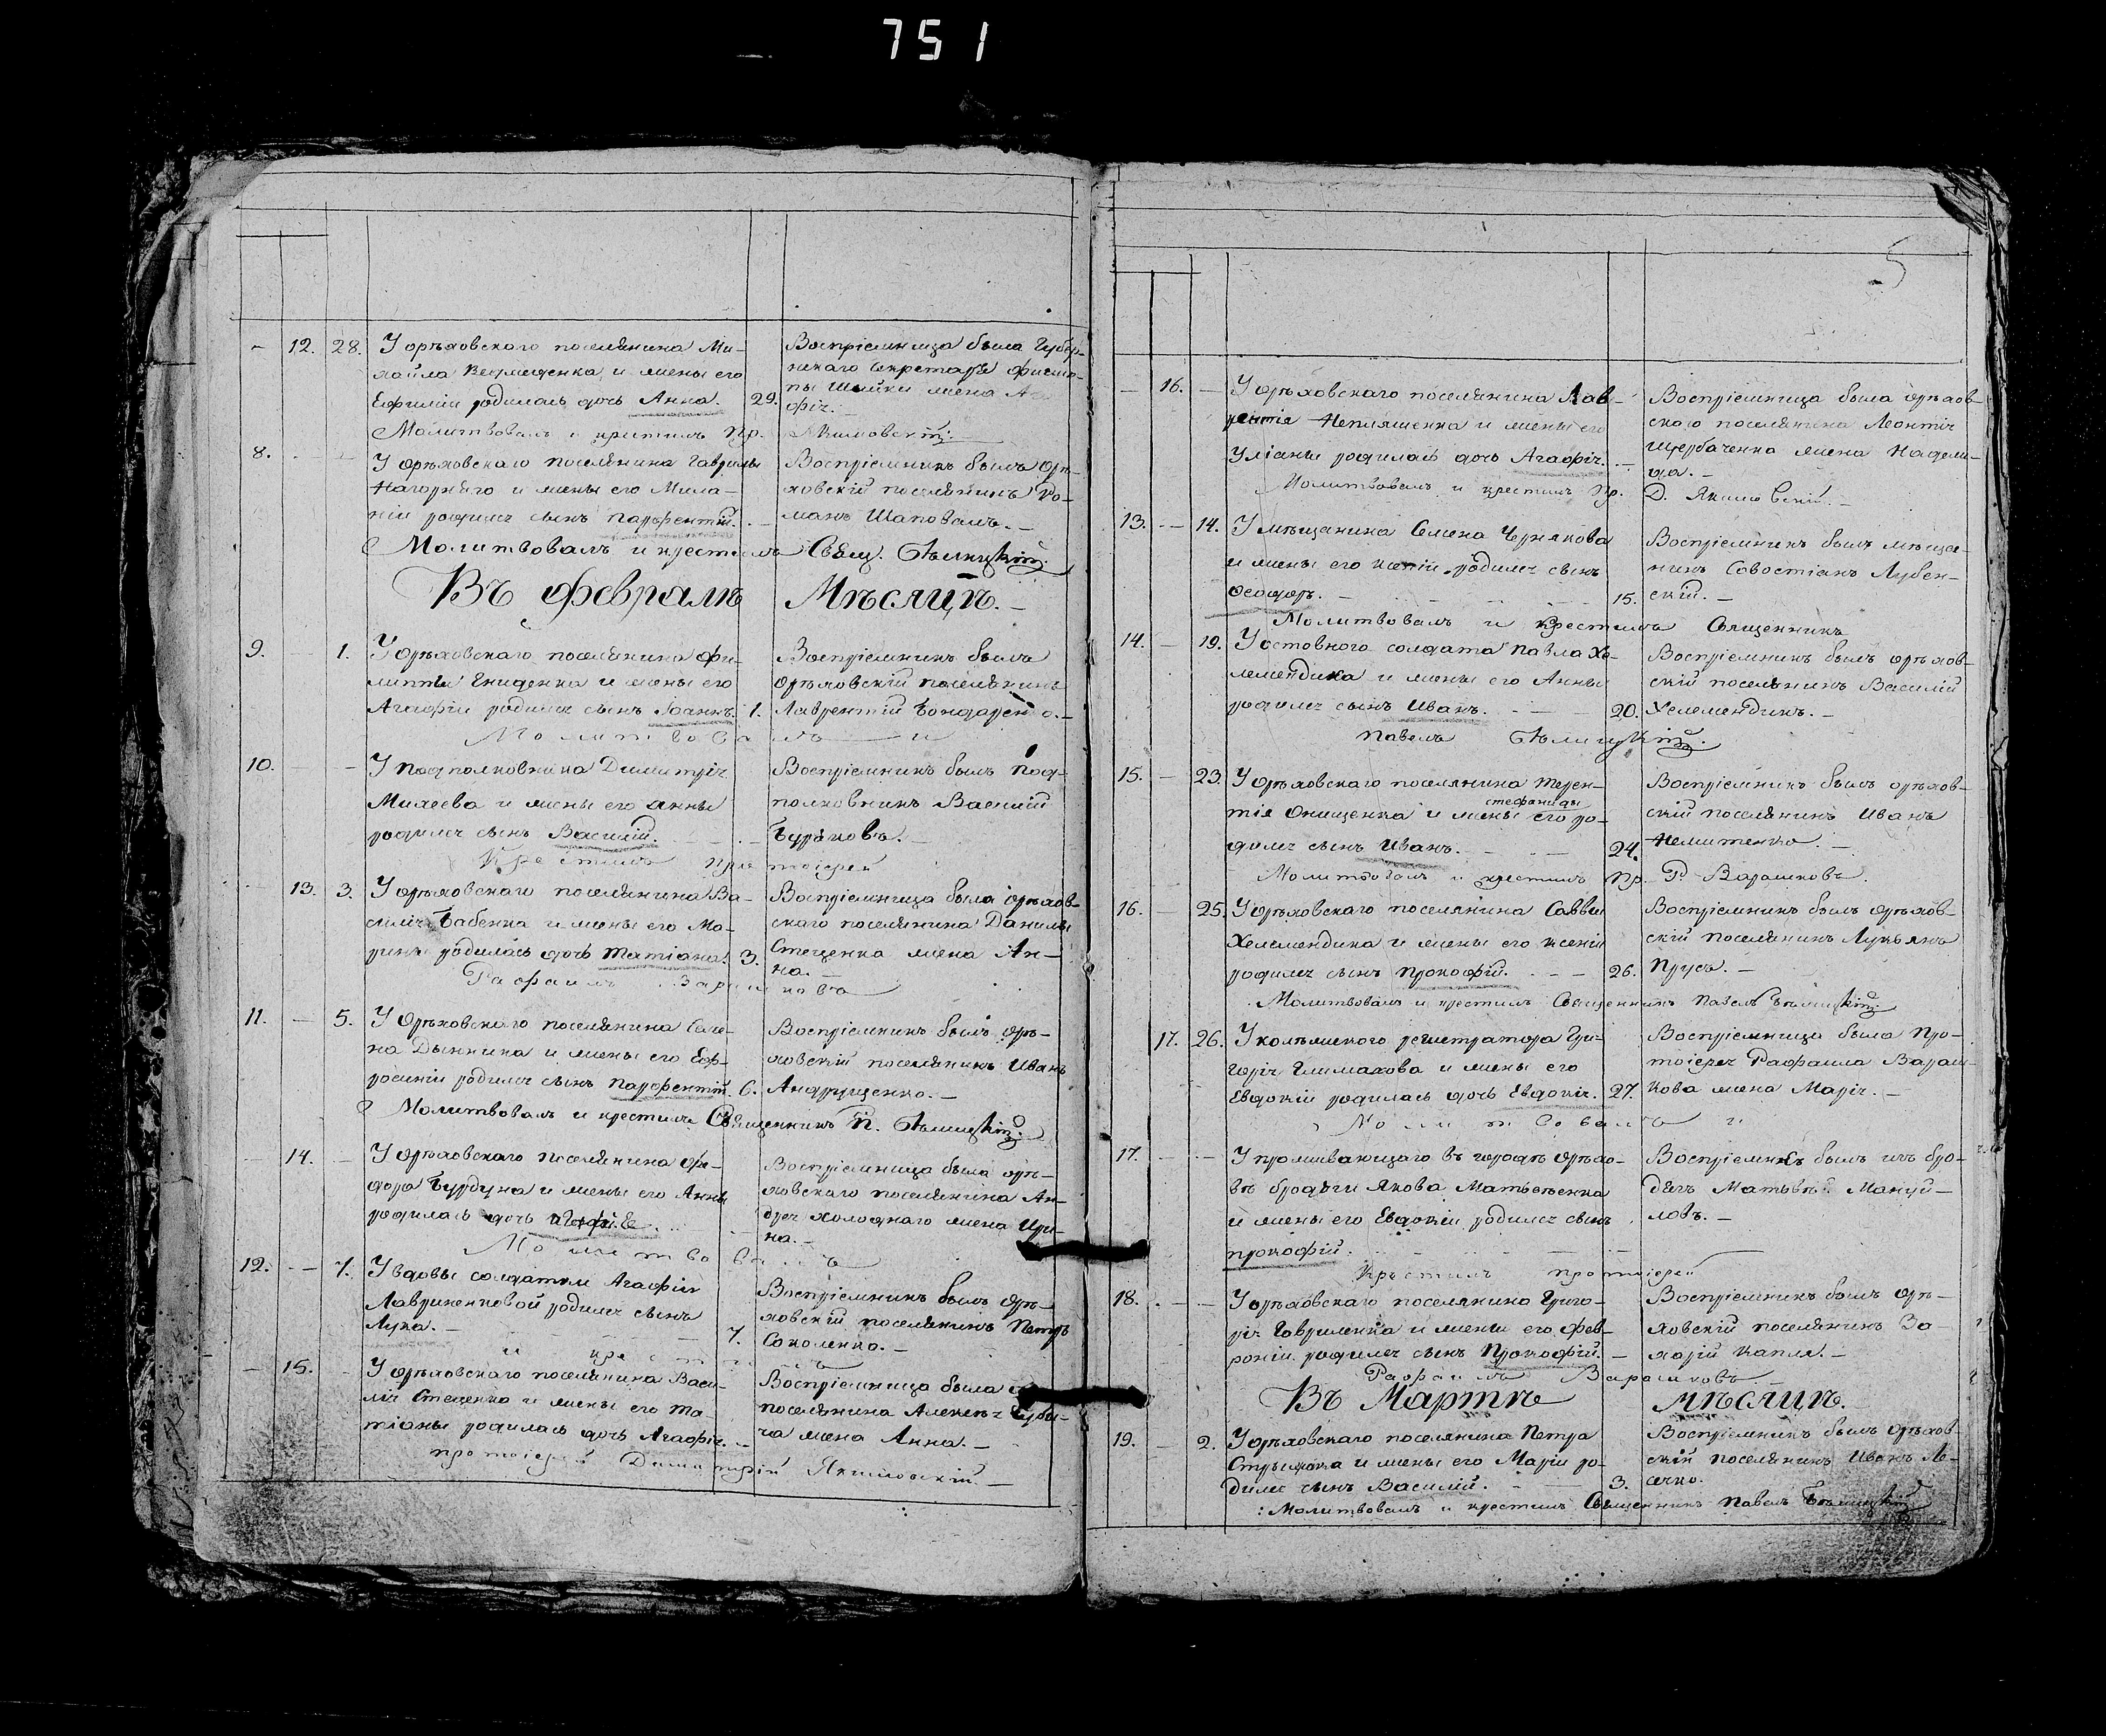 751
12. 28. У орѣховскаго поселянина Ми-
хайла и жены его
Евфиміи родилась дочь Анна. 29.
Воспріемница была Губер-
нскаго Секретаря
жена
Молитвовалъ и крестилъ Пр. Якимовскій.
8. У орѣховскаго поселянина Гаврилы
Нагорняго и жены его Мела-
ніи родился сынъ Парфентій.
Воспріемникъ былъ орѣ-
ховскій поселянинъ Ро-
манъ Шаповалъ.
Молитвовалъ и крестилъ Свящ. Бѣлицкій.
Въ Февралѣ Мѣсяцѣ.
9. 1. У орѣховскаго поселянина Фи-
липпа Гниденка и жены его
Агафіи родился сынъ Іоаннъ. 1.
Воспріемникъ былъ
орѣховскій поселянинъ
Лаврентій Бондаренко.
Молитвовалъ и
10. У подполковника Димитрія
Михеева и жены его Анны
родился сынъ Василій.
Воспріемникъ былъ под-
полковникъ Василій
Бураковъ.
Крестилъ протоіерей
13. 3. У орѣховскаго поселянина Ва-
силія Бабенка и жены его Ма-
рины родилась дочь Татіана. 3.
Воспріемница была орѣхов-
скаго поселянина Данилы
Стеценка жена Ан-
на.
Рафаилъ Варшковъ
11. 5. У орѣховскаго поселянина Семе-
на Дынника и жены его Евф-
росиніи родился сынъ Парфентій. 6.
Воспріемникъ былъ орѣ-
ховскій поселянинъ Иванъ
Андрущенко.
Молитвовалъ и крестилъ Священникъ П. Бѣлицкій.
14. У орѣховскаго поселянина Фе-
дора Бурдуна и жены его Анны
родилась дочь
Воспріемница была орѣ-
ховскаго поселянина Ан-
дрея Холоднаго жена Ири-
на.
Молитвовалъ
12. 7. У вдовы солдатки Агафіи
Лавриненковой родился сынъ
Лука. 7.
Воспріемникъ былъ орѣ-
ховскій поселянинъ Петръ
Соколенко.
и крестилъ
15. У орѣховскаго поселянина Васи-
лія Стеценка и жены его Та-
тіаны родилась дочь Агафія.
Воспріемница была
поселянина Алексѣя
жена Анна.
протоіерей Димитрій Якимовскій.
5
16. У орѣховскаго поселянина Лав-
рентія Непляшенка и жены его
Уліаны родилась дочь Агафія.
Воспріемница была орѣхов-
скаго поселянина Леонтія
Щербаченка жена Надеж-
да.
Молитвовалъ и крестилъ Пр. Д. Якимовскій.
13. 14. У мѣщанина Семена Чернякова
и жены его Ксеніи родился сынъ
Ѳеодоръ. 15.
Воспріемникъ былъ мѣща-
нинъ Савостіанъ Лубен-
скій.
Молитвовалъ и крестилъ Священникъ
14. 19. У отставного солдата Павла Хе-
лемендика и жены его Анны
родился сынъ Иванъ. 20.
Воспріемникъ былъ орѣхов-
скій поселянинъ Василій
Хелемендикъ.
Павелъ Бѣлицкій.
15. 23. У орѣховскаго поселянина Терен-
тія Онищенка и жены его стефаниды ро-
дился сынъ Иванъ. 24.
Воспріемникъ былъ орѣхов-
скій поселянинъ Иванъ
Немитенко.
Молитвовалъ и крестилъ Пр. Р. Варшковъ.
16. 25. У орѣховскаго поселянина Саввы
Хелемендика и жены его Ксеніи
родился сынъ Прокофій. 26.
Воспріемникъ былъ орѣхов-
скій поселянинъ Лукьянъ
Прусъ.
Молитвовалъ и крестилъ Священникъ Павелъ Бѣлицкій.
17. 26. У колѣжского регистратора Гри-
горія Глимахова и жены его
Евдокіи родилась дочь Евдокія. 27.
Воспріемница была Про-
тоіерея Рафаила Вараш-
кова жена Марія.
Молитвовалъ и
17. У проживающаго въ городѣ Орѣхо-
вѣ бродяги Якова Матвѣенка
и жены его Евдокіи родился сынъ
Прокофій.
Воспріемникъ былъ изъ бро-
дягъ Матвѣй Мануй-
ловъ.
Крестилъ протоіерей
18. У орѣховскаго поселянина Григо-
рія Гавриленка и жены его Фев-
роніи родился сынъ Прокофій.
Воспріемникъ былъ орѣ-
ховскій поселянинъ За-
харій Капля.
Рафаилъ Варашковъ
Въ Мартѣ мѣсяцѣ.
19. 2. У орѣховскаго поселянина Петра
Стрыжака и жены его Маріи ро-
дился сынъ Василій. 3.
Воспріемникъ былъ орѣхов-
скій поселянинъ Иванъ Ле-
сечко.
Молитвовалъ и крестилъ Священникъ Павелъ Бѣлицкій